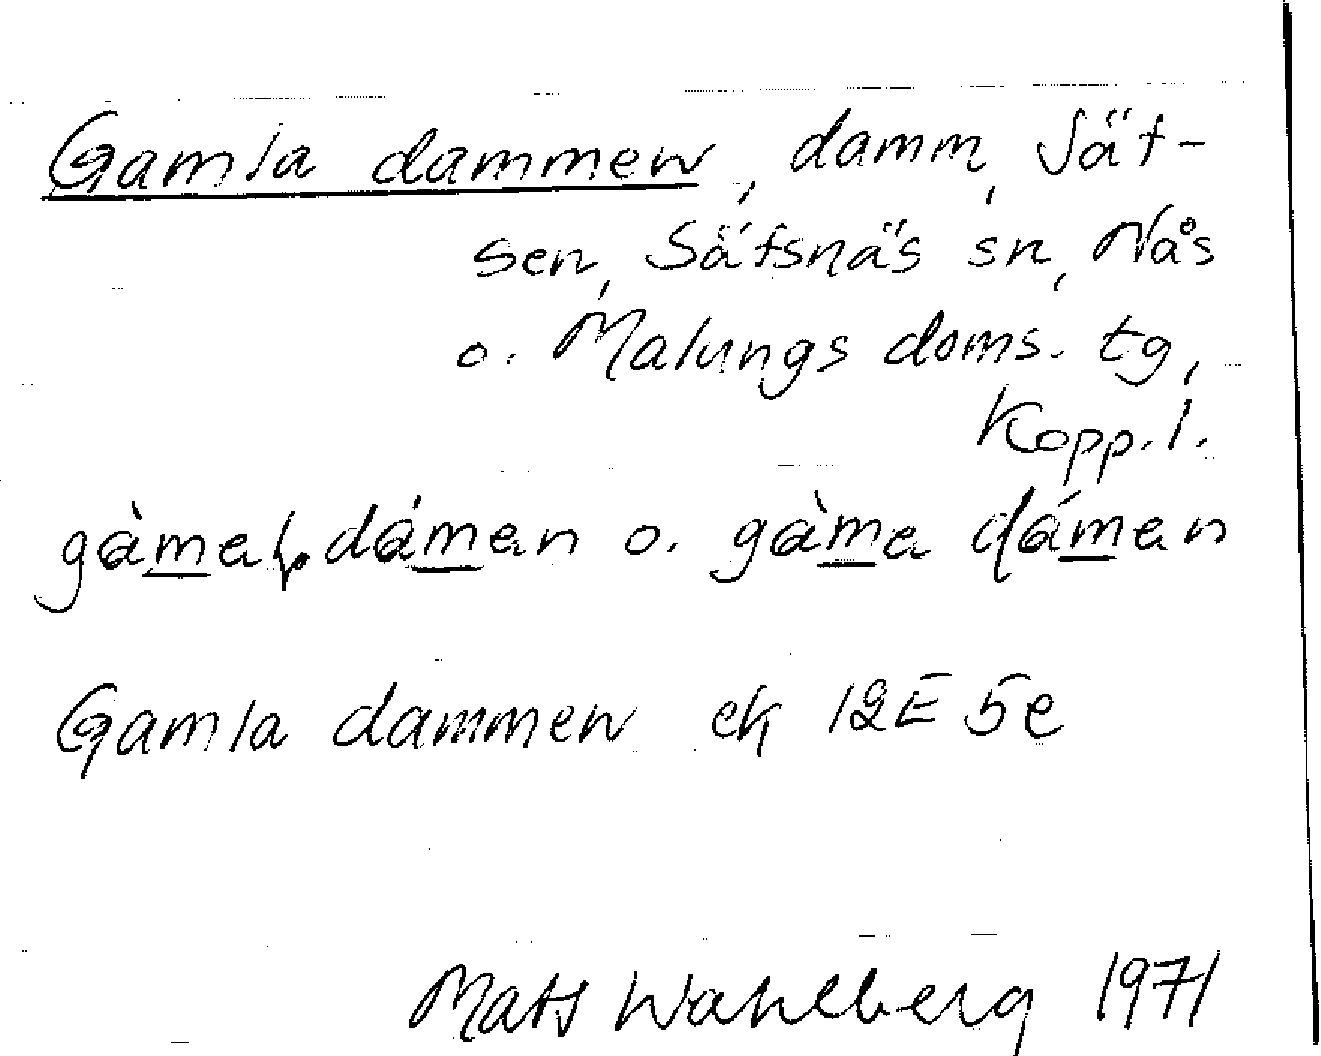 Gamla dammen, damm, Sät-
sen, Säfsnäs sn, Nås
o. Malungs doms. tg,
Kopp. l.
gàmaɫ dámen o. gàma dámen
Gamla dammen ek 12E 5e
Mats Wahlberg 1971